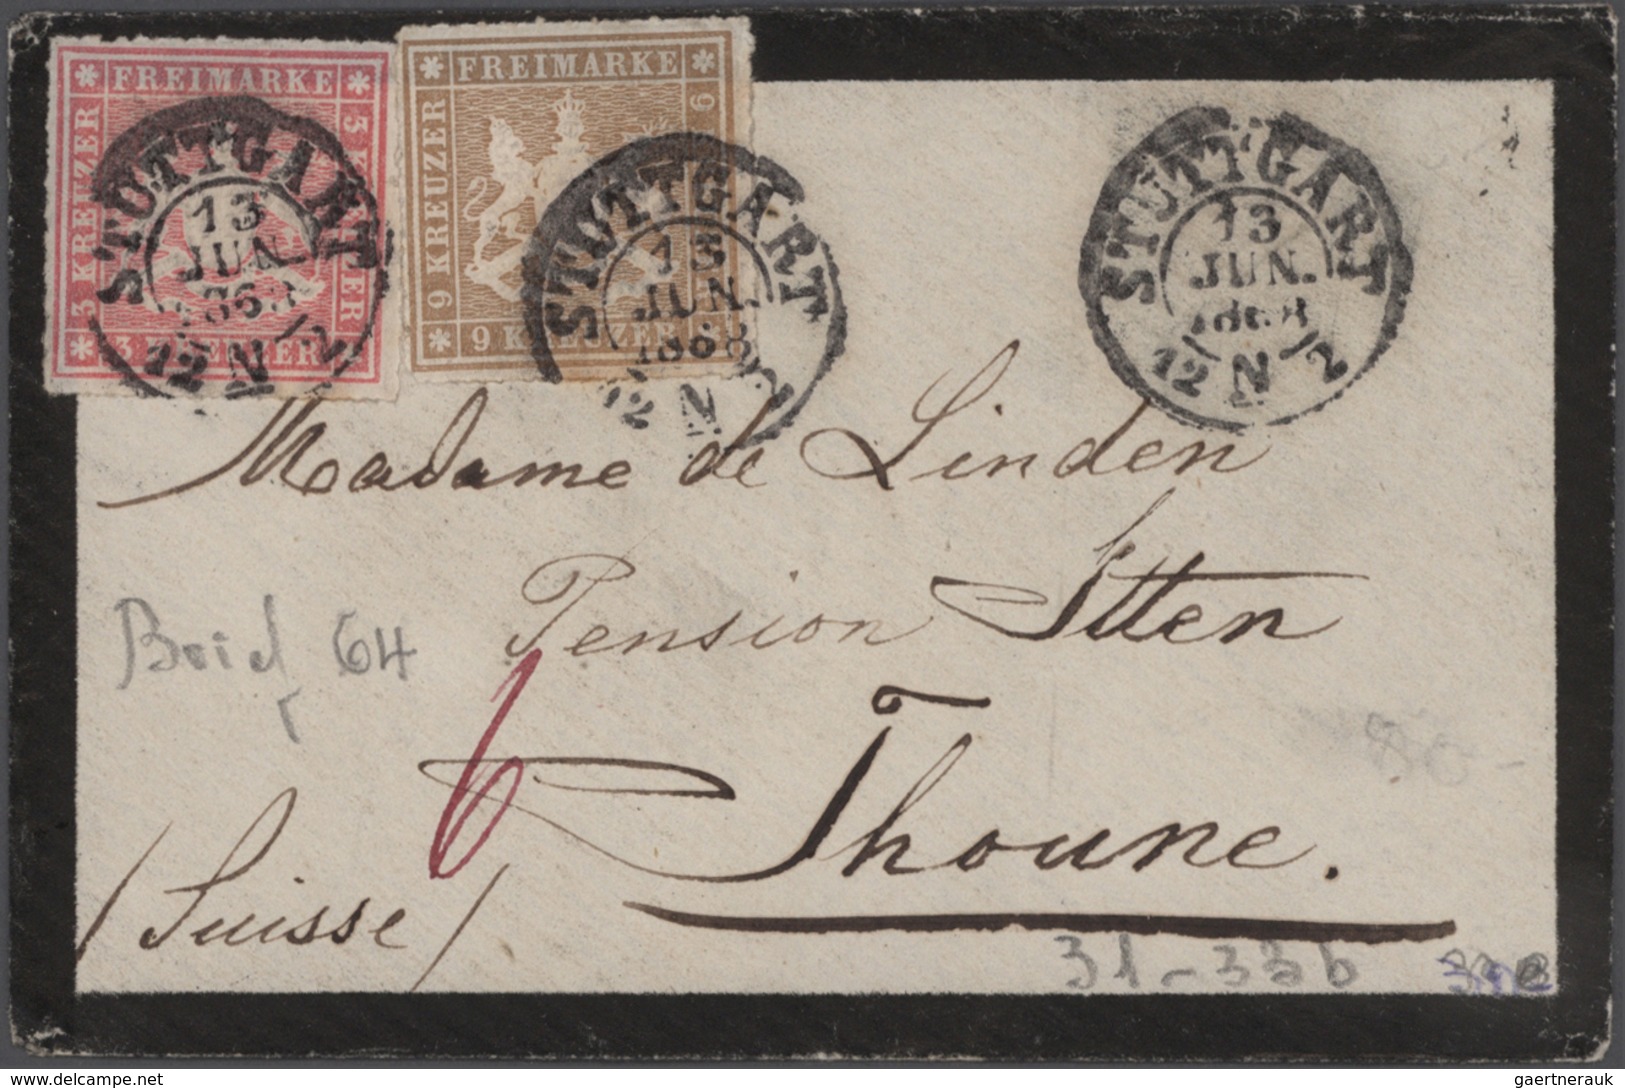 FREIMARKE
3 KREUZER
3 KREUZER
3 KREUZER
FREIMARKE
9 KREUZER
9
9 KREUZER
STUTTGART
13
JUN.
186
12 N 2
STUTTGART
13
JUN.
1868
12 N 2
STUTTGART
13
JUN.
1868
12 N 2
Madame de Linden
Pension Itten
Brief 64
6
Thoune.
(Suisse)
31-33b
www.delcampe.net
gaertnerauk